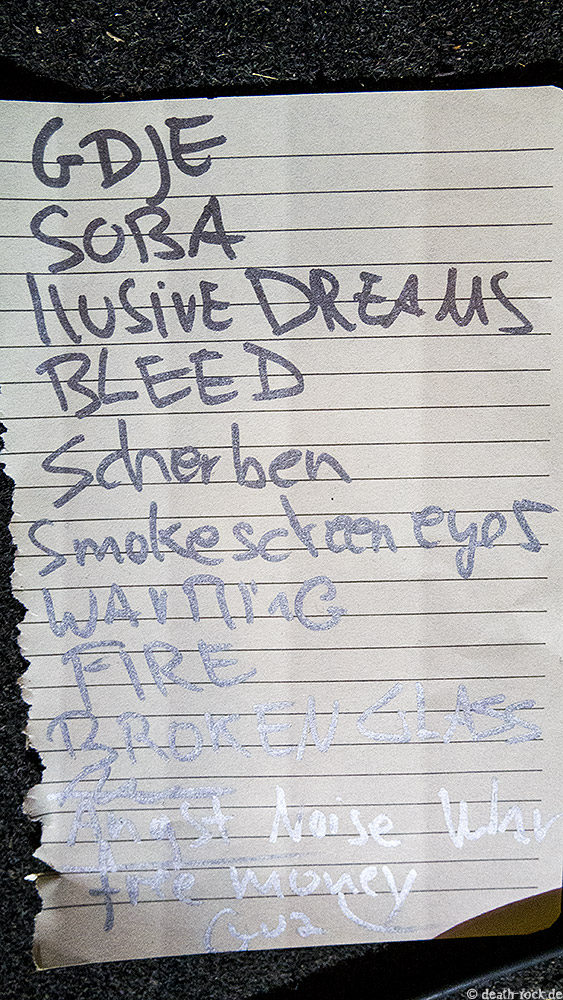 GDJE
SOBA
IlUSiVE DREAMS
BLEED
Scherben
Smokescreen eyes
WARNiNG
FIRE
BROKEN GLASS
Angst Noise
free money
© death-rock.de